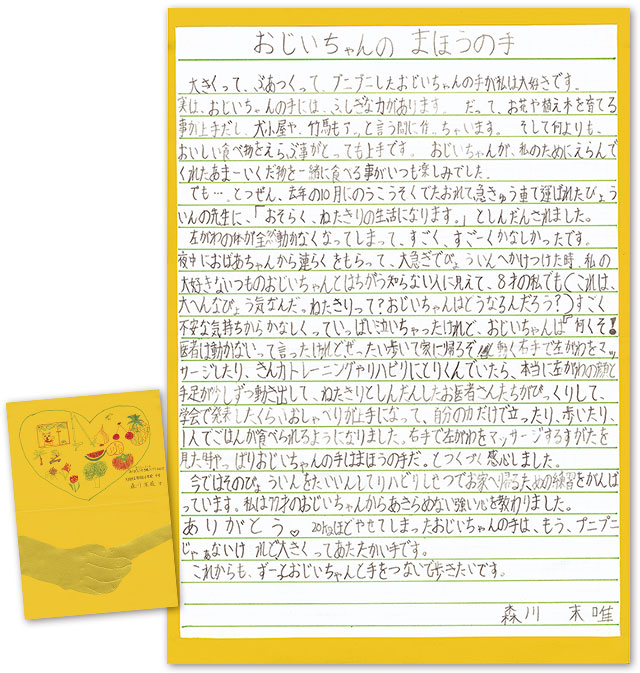 おじいちゃんの まほうの手
大きくって、ぶあつくって、プニプニしたおじいちゃんの手が私は大好きです。
実は、おじいちゃんの手には、ふしぎな力があります。 だって、お花や植え木を育てる
事が上手だし、犬小屋や、竹馬もアッと言う間に作っちゃいます。 そして何よりも、
おいしい食べ物をえらぶ事がとっても上手です。 おじいちゃんが、私のためにえらんで
くれたあまーいくだ物を一緒に食べる事がいつも楽しみでした。
でも…、とつぜん、去年の10月にのうこうそくでたおれて急きゅう車で運ばれたびょう
いんの先生に、「おそらく、ねたきりの生活になります。」としんだんされました。
左がわの体が全然動かなくなってしまって、すごく、すごーくかなしかったです。
夜中におばあちゃんから連らくをもらって、大急ぎでびょういんへかけつけた時、私の
大好きないつものおじいちゃんとはちがう知らない人に見えて、8才の私でも(これは、
大へんなびょう気なんだ。ねたきりって?おじいちゃんはどうなるんだろう?)すごく
不安な気持ちからかなしくっていっぱい泣いちゃったけれど、おじいちゃんは「何くそ!
医者は動かないって言ったけれどぜったい歩いて家に帰るぞ 動く右手で左がわをマッ
サージしたり、きん力トレーニングやリハビリにとりくんでいたら、本当に左がわの顔と
手足が少しずつ動き出して、ねたきりとしんだんしたお医者さんたちがびっくりして、
学会で発表したくらいおしゃべりが上手になって、自分の力だけで立ったり、歩いたり、
1人でごはんが食べられるようになりました。右手で左がわをマッサージするすがたを
見た時やっぱりおじいちゃんの手はまほうの手だ。とつくづく感心しました。
今ではそのびょういんをたいいんしてリハビリしせつでお家へ帰るための練習をがんば
っています。私は77才のおじいちゃんからあきらめない強い心を教わりました。
ありがとう。20kgほどやせてしまったおじいちゃんの手は、もう、プニプニ
じゃぁないけれど大きくってあたたかい手です。
これからも、ずーっとおじいちゃんと手をつないで歩きたいです。
森川 末唯